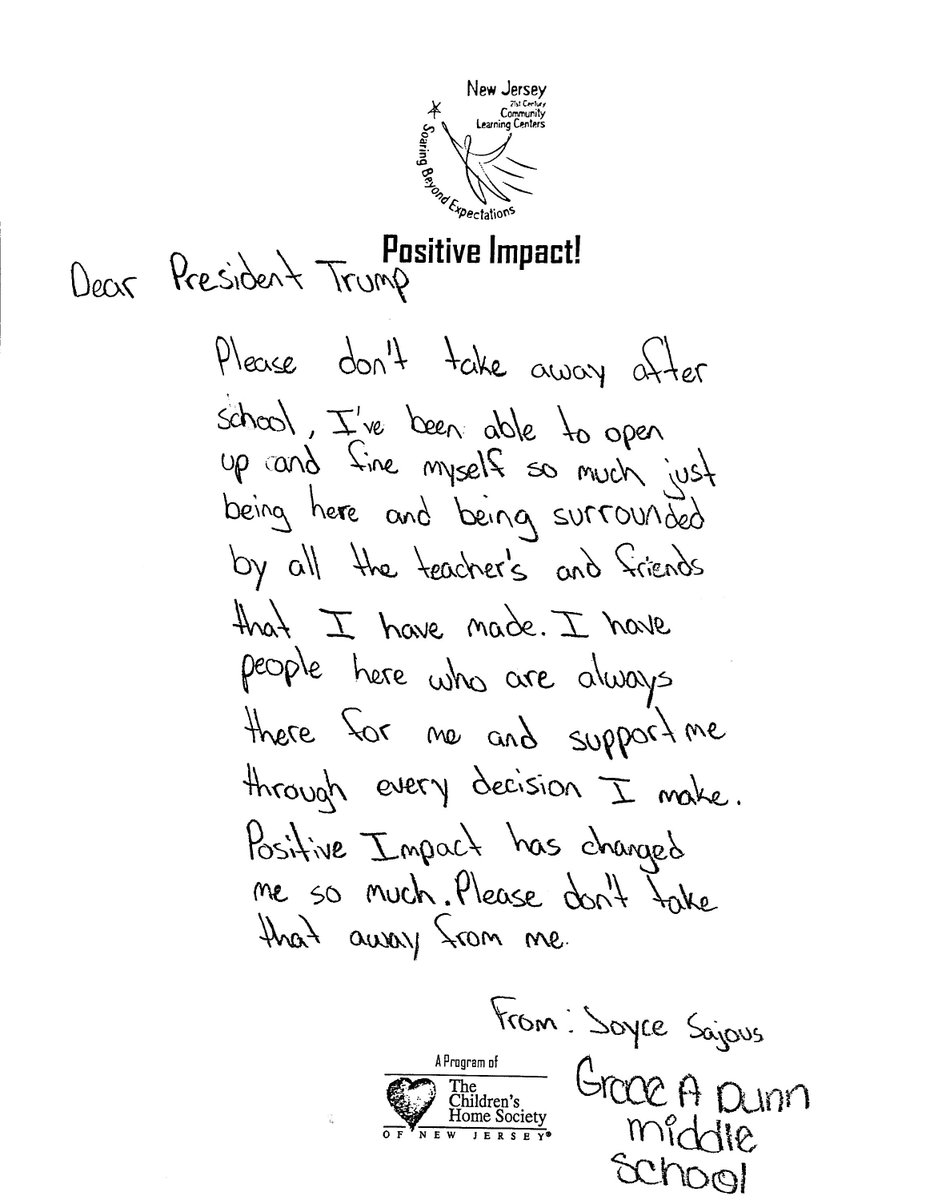 New Jersey
21st Century
Community
Learning Centers
Soaring Beyond Expectations
Positive Impact!
Dear President Trump
Please don't take away after
school, I've been able to open
up and fine myself so much just
being here and being surrounded
by all the teacher's and friends
that I have made. I have
people here who are always
there for me and support me
through every decision I make.
Positive Impact has changed
me so much. Please don't take
that away from me.
From: Joyce Sajous
Grace A Dunn
middle
school
A Program of
The
Children's
Home Society
OF NEW JERSEY®